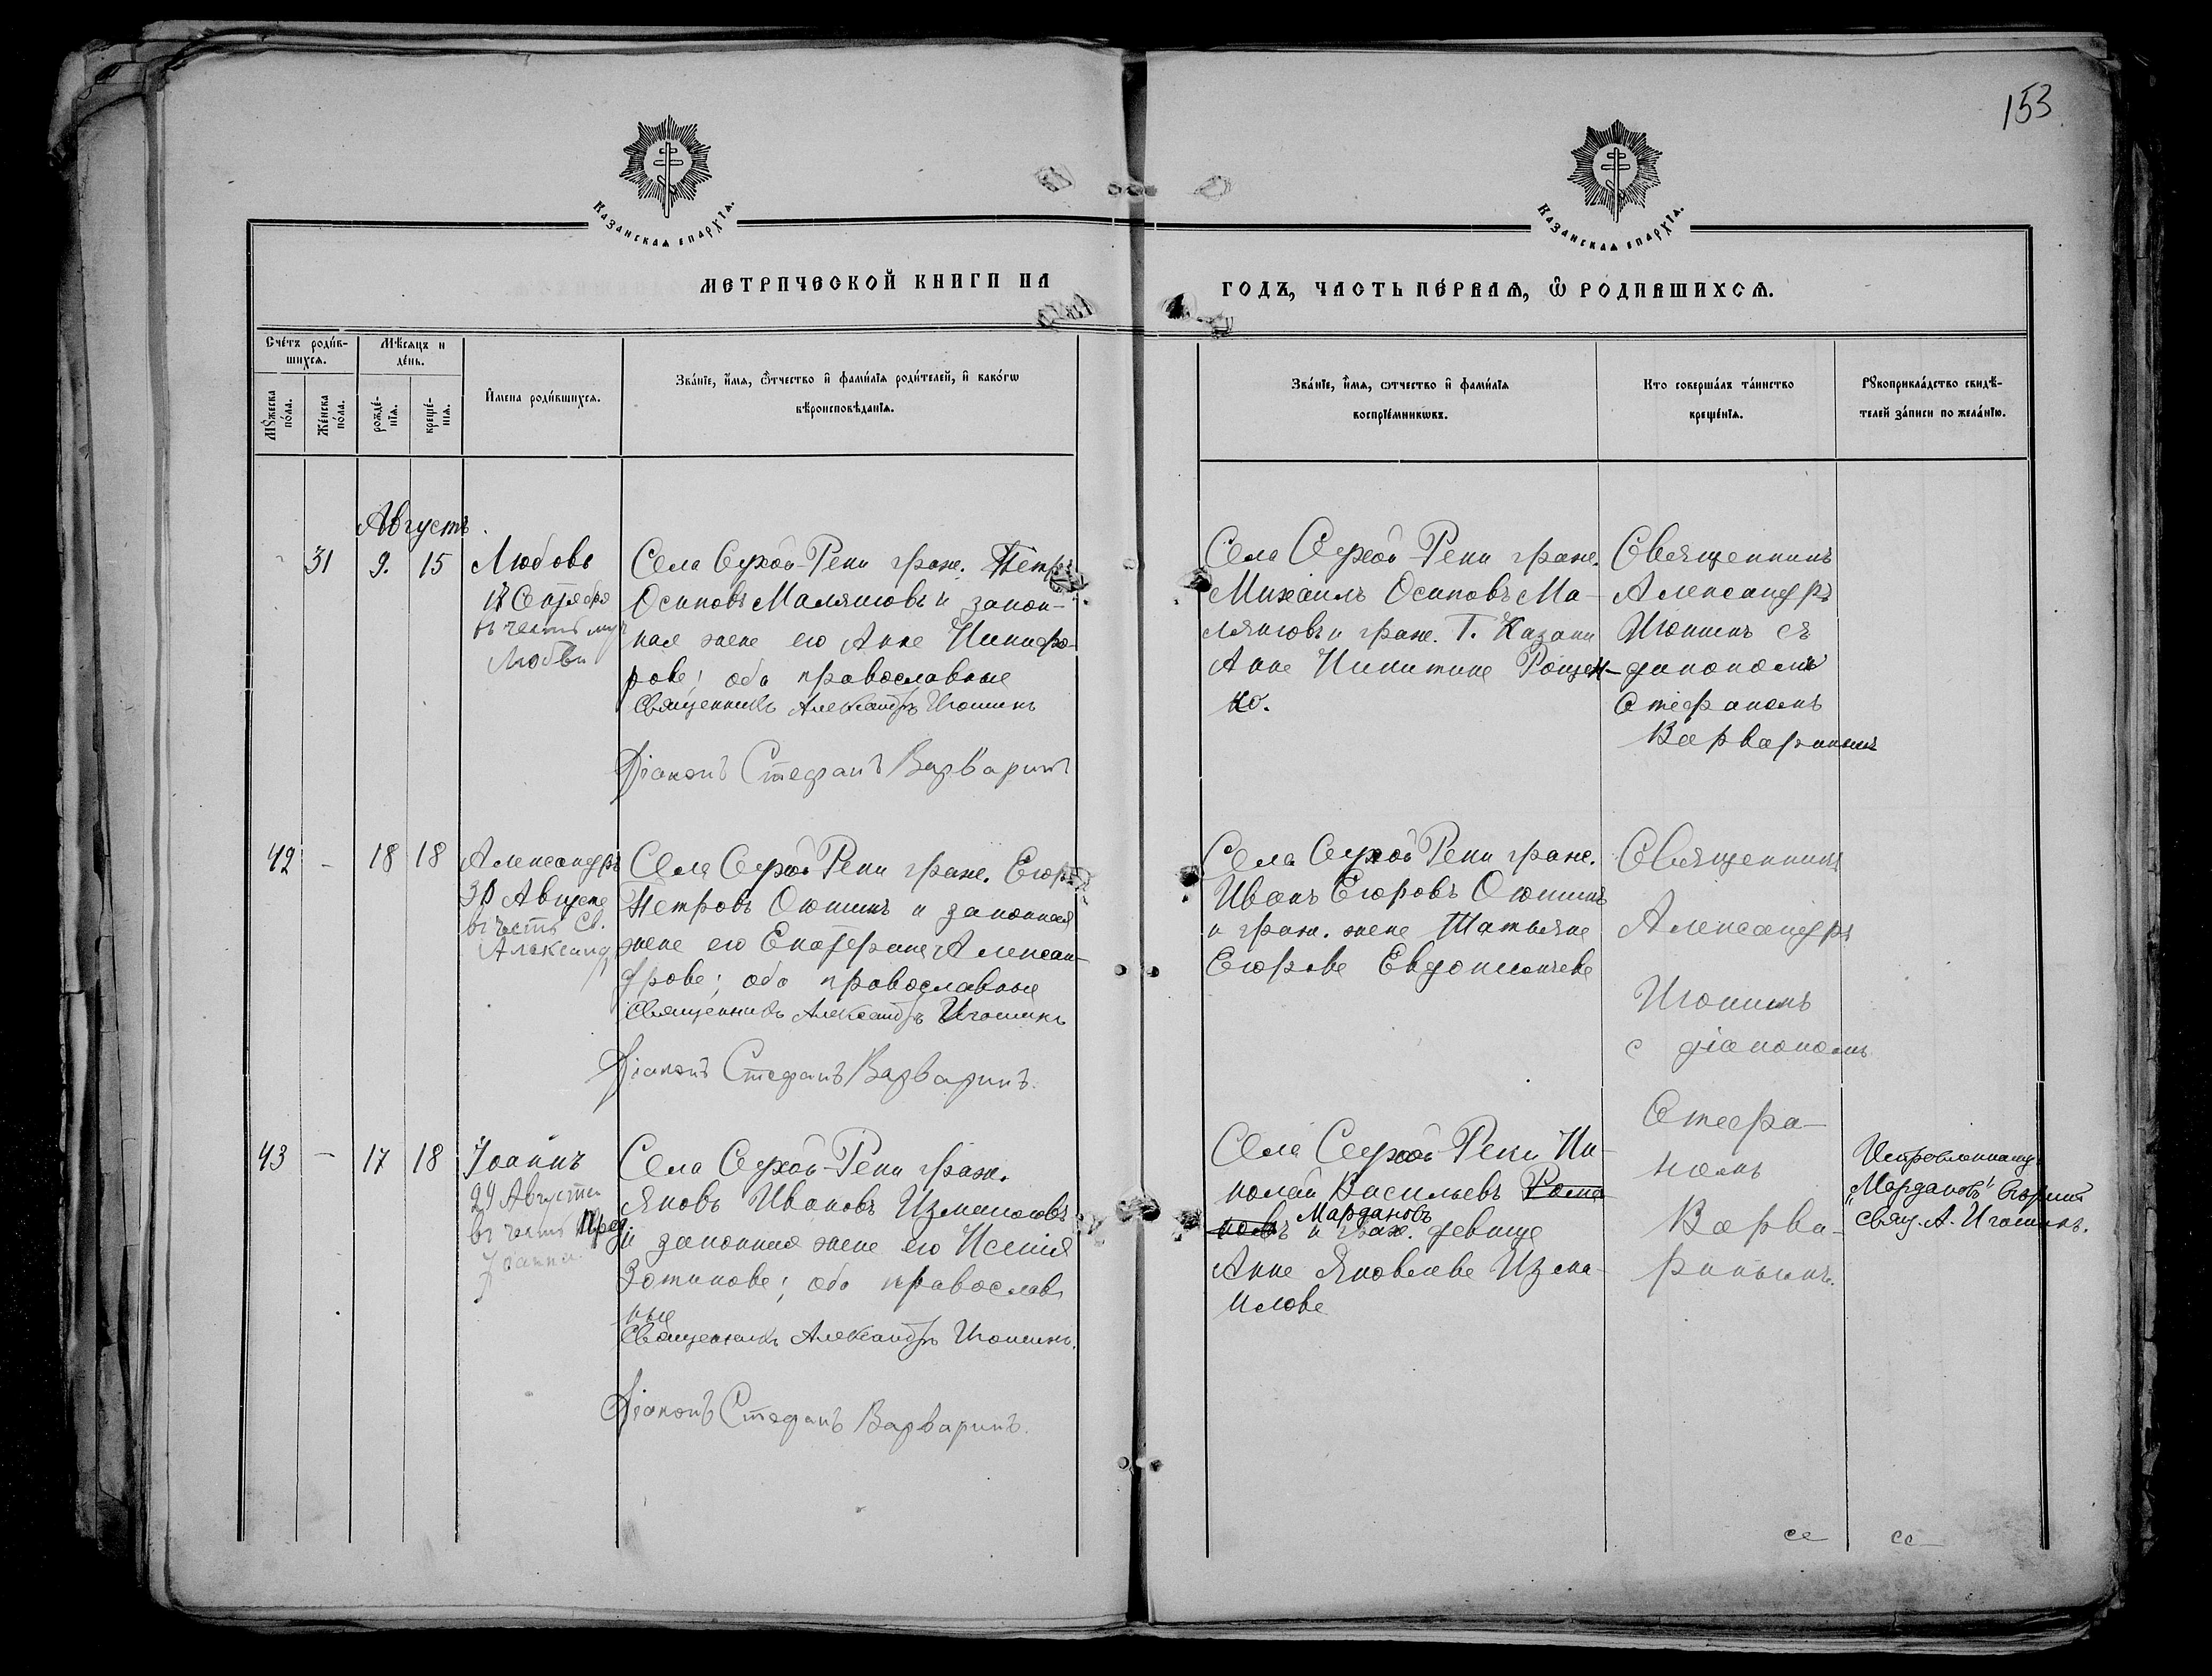 153
Казанская епархїя.
Казанская епархїя.
МЕТРИЧЕСКОЙ КНИГИ НА
ГОДЪ, ЧАСТЬ ПЕ́РВАЯ, Ѽ РОДИВШИХСЯ.
Сче́тъ роди́в-
шихся.
Мѣ́сяцъ и
де́нь.
Мꙋ́жеска
по́ла.
Же́нска
по́ла.
рожде́-
нїя.
креще́-
нїя.
И҆мена роди́вшихся.
Зва́нїе, и҆́мя, ѻ҆́тчество и҆ фами́лїя роди́телей, и҆ како́гѡ
вѣроисповѣ́данїя.
Зва́нїе, и҆́мя, ѻ҆тчество и҆ фами́лїя
воспрїе́мникѡвъ.
Кто соверша́лъ та́инство
креще́нїя.
Рꙋкоприкла́дство свидѣ́-
телей за́писи по жела́нїю.
Августъ
31 9. 15 Любовь
17 Сентября
въ честь муч
Любви
Села Сухой-Реки граж. Петръ
Осиповъ Маляшовъ и закон-
ная жена его Анна Никифо-
рова; оба православные
Священникъ Александръ Игошинъ
Діаконъ Стефанъ Варваринъ
Села Сухой-Реки граж.
Михаилъ Осиповъ Ма-
ляшовъ и граж. Г. Казани
Анна Никитина Рощен-
ко.
Священникъ
Александръ
Игошинъ съ
діакономъ
Стефаномъ
Варваринымъ
42 - 18 18 Александръ
30 Августа
въ честь Св.
Александ
Села Сухой Реки граж. Егоръ
Петровъ Оюшинъ и законная
жена его Екатерина Алексан-
дрова; оба православные
Священникъ Александръ Игошинъ
Діаконъ Стефанъ Варваринъ.
Села Сухой Реки граж.
Иванъ Егоровъ Оюшинъ
и граж. жена Татьяна
Егорова Евдокимчева
Священникъ
Александръ
Игошинъ
с діакономъ
Стефа-
номъ
Варва-
ринымъ.
43 - 17 18 Іоаннъ
29 Августа
въ честь Пред
Іоанна.
Села Сухой-Реки граж.
Яковъ Ивановъ Измаиловъ
и законная жена его Ксенія
Зотикова; оба православ
ные
Священникъ Александръ Игошинъ.
Діаконъ Стефанъ Варваринъ.
Села Сухой Реки Ни-
колай Васильевъ Рома-
новъ Мардановъ
и граж. девица
Анна Яковлева Изма-
илова
Исправленному
"Мардановъ" верить
свящ. А. Игошинъ.